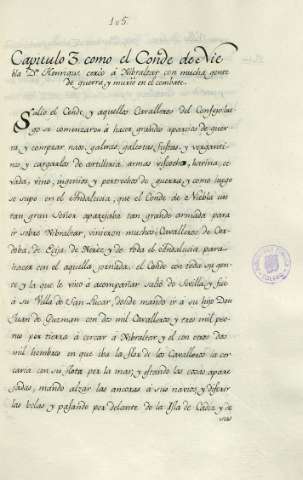 105.
Capitulo 3. como el Conde de Nie-
bla Dn Henrique cercó à Gibraltar con mucha gente
de guerra, y murió en el combate.
Salió el Conde y aquellos Cavalleros del Consejo lue-
go se comenzaron à hacer grandes aparejos de guer-
ra, y comprar naos, galeras, galeotas, fustas, y vergantines
y cargarlos de artilleria, armas viscocho, harina, ce-
vada, vino, ingenios y pertrechos de guerra, y como luego
se supo en el Andalucia, que el Conde de Niebla un
tan gran Señor aparejaba tan grande armada para
ir sobre Gibraltar, vinieron muchos Cavalleros de Cor-
doba, de Ecija, de Xerez, y de toda el Andalucia para
hacer con el aquella jornada; el Conde con toda su gen-
te y la que le vino à acompañar salió de Sevilla y fué
à su Villa de San Lucar, donde mandó ir a su hijo Don
Juan de Guzman con dos mil Cavalleros, y tres mil peo-
nes por tierra à cercar à Gibraltar y el con otros dos
mil hombres en que iba la flor de los Cavalleros la cer-
caria con su flota por la mar; y estando las cosas apare-
jadas, mandó alzar las ancoras à sus navios, y diferir
las belas y pasando por delante de la Isla de Cadiz y de
sus